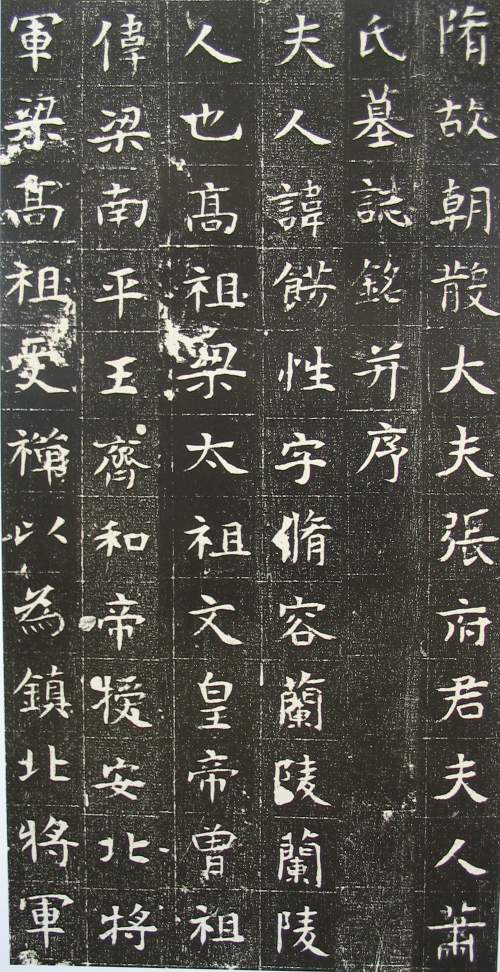 隋故朝散大夫張府君夫人蕭
氏墓誌銘并序
夫人諱餝性字脩容蘭陵蘭陵
人也高祖梁太祖文皇帝曾祖
偉梁南平王齊和帝授安北將
軍梁高祖受禪以為鎮北將軍